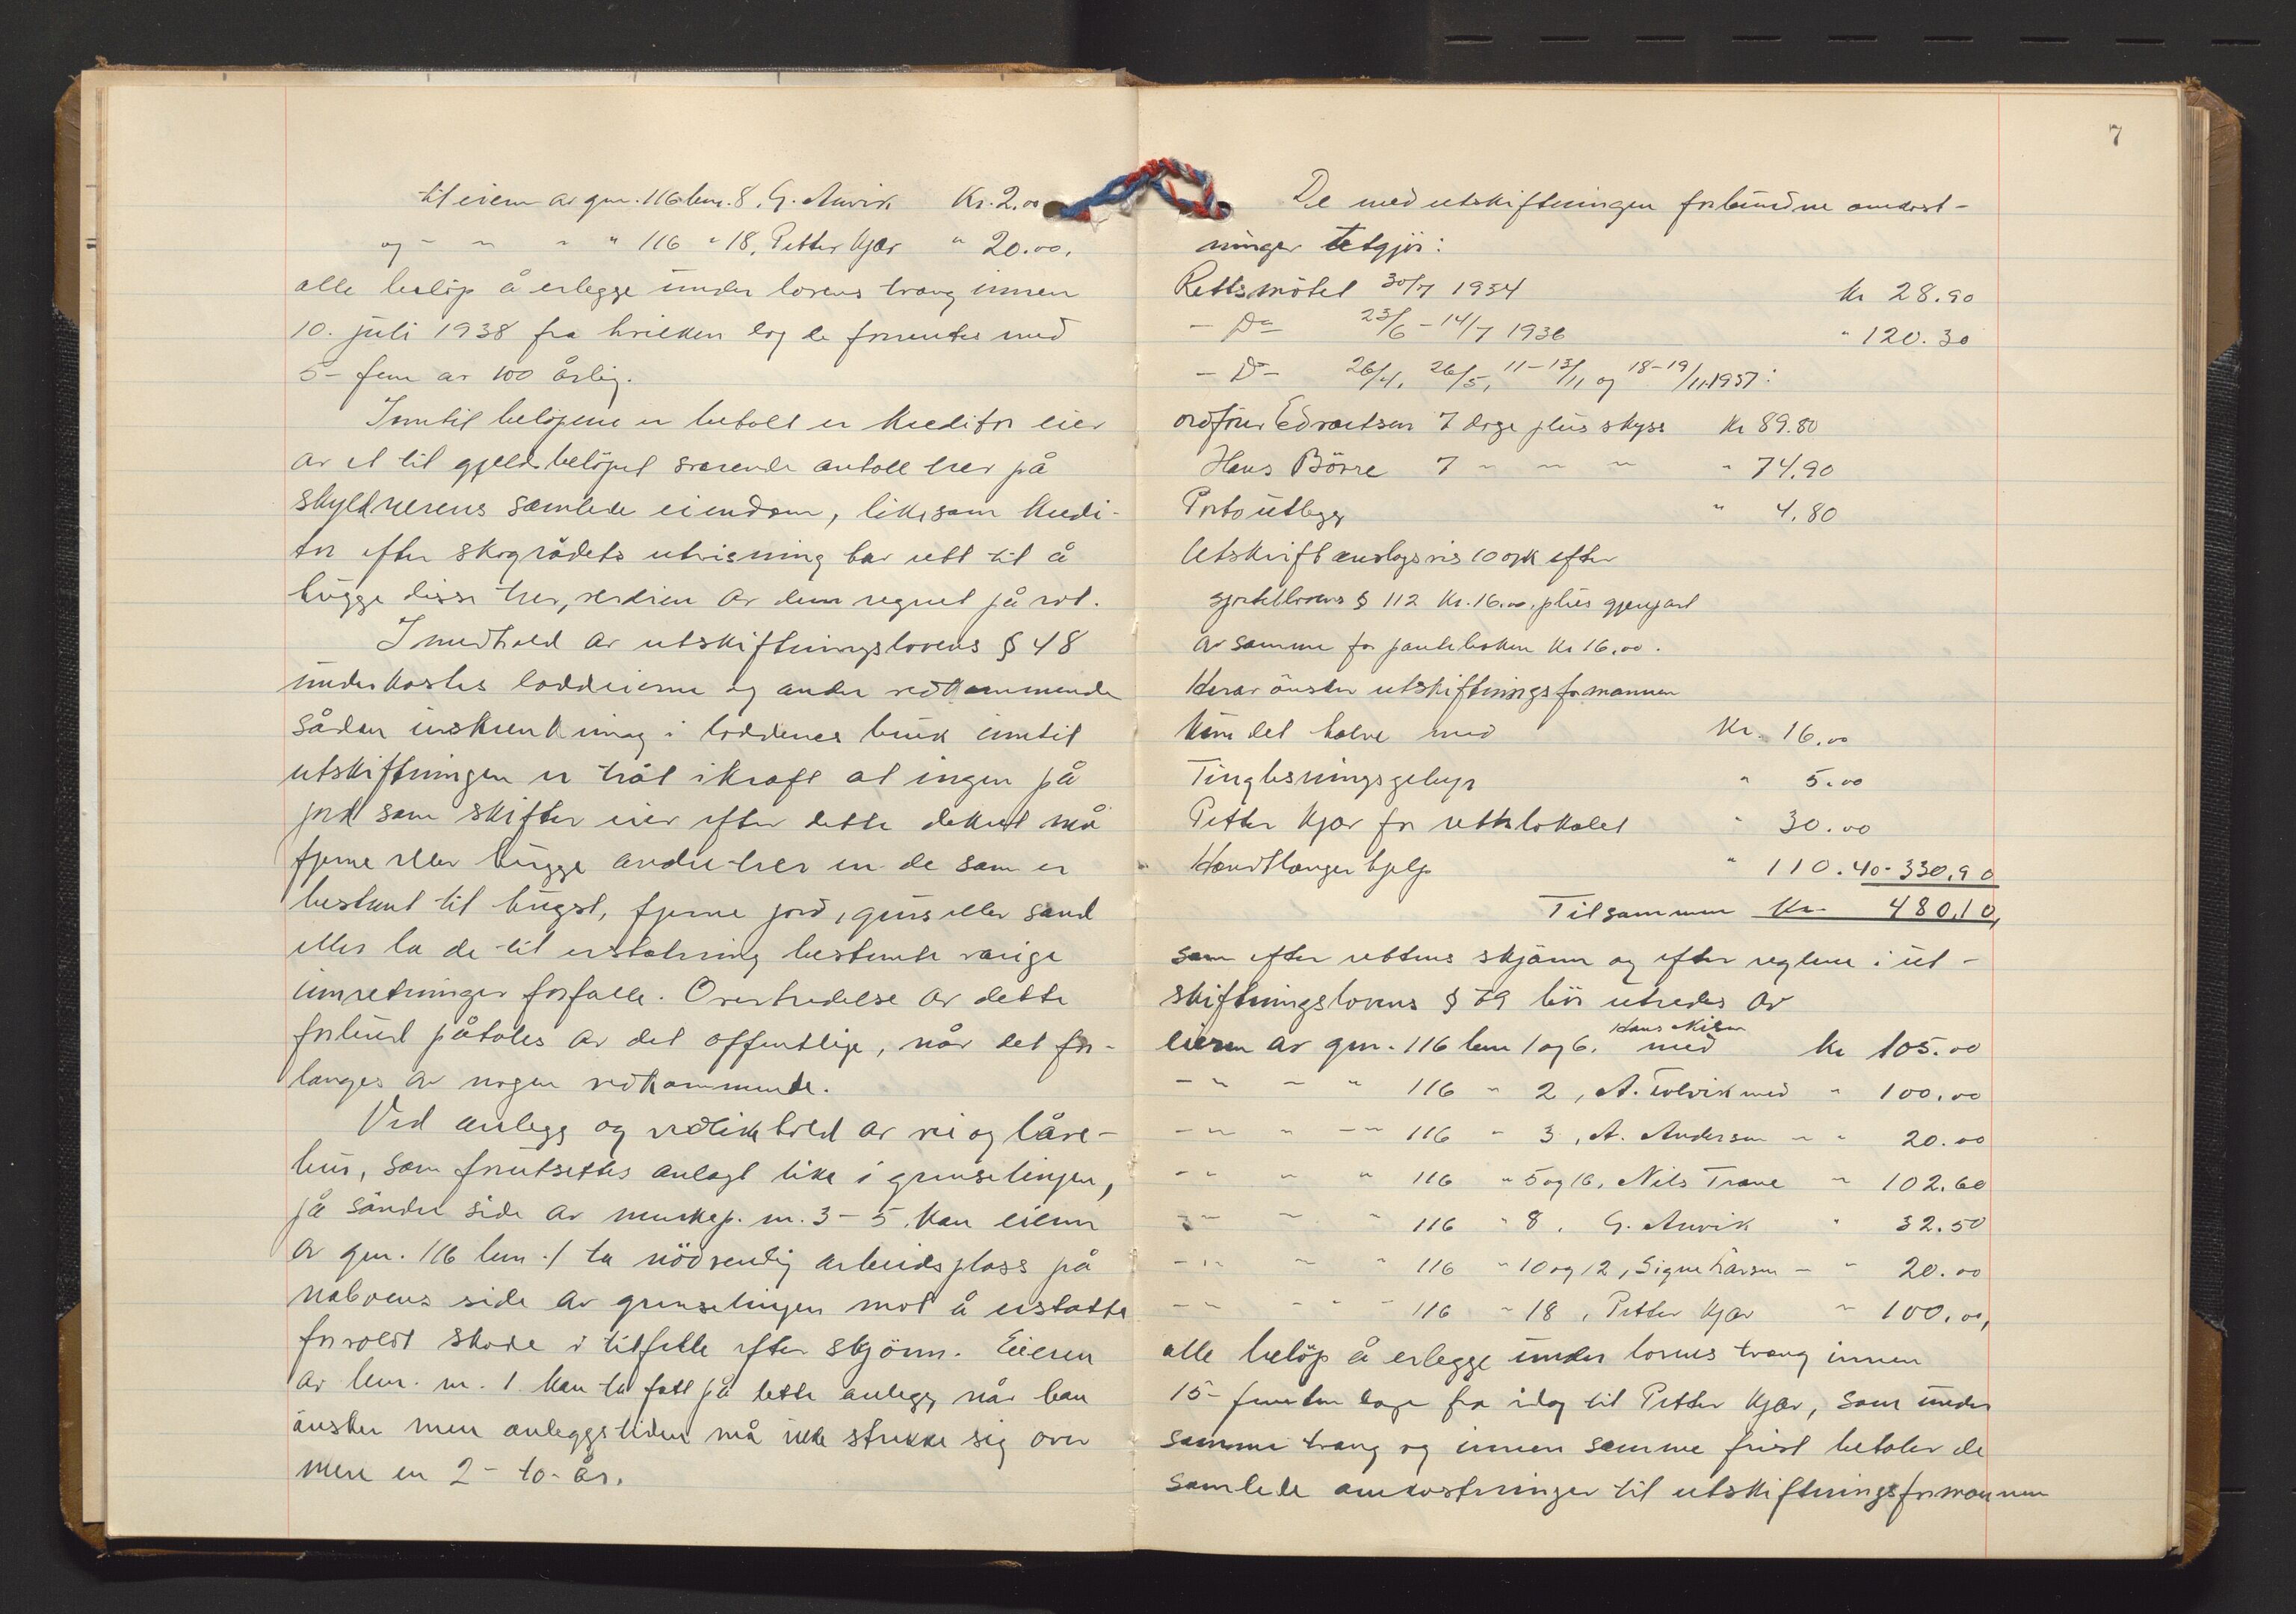 til eieren av gnr. 116 bnr. 8, G. Anvik Kr. 2.00
og - " " " 116 " 18, Petter Kjær " 20.00,
alle beløp å erlegge under lovens tvang innen
10. juli 1938 fra hvilken dag de forrentes med
5 - fem av 100 årlig.
Inntil beløpene er betalt er kreditor eier
av et til gjeldsbeløpet svarende antall trær på
skyldnerens samlede eiendom, likesom kredi-
tor efter skogrådets utvisning har rett til å
hugge disse trær, verdien av dem regnet på rot.
I medhold av utskiftningslovens § 48
underkastes loddeierne og andre vedkommende
sådan innskrenkning i loddenes bruk inntil
utskiftningen er trått i kraft at ingen på
jord som skifter eier efter dette dekret må
fjerne eller hugge andre trær en de som er
bestemt til hugst, fjerne jord, grus eller sand
eller la de til erstatning bestemte varige
innretninger forfalle. Overtredelse av dette
forbud påtales av det offentlige, når det for-
langes av nogen vedkommende.
Ved anlegg og vedlikehold av vei og låve-
bru, som forutsettes anlagt like i grenselinjen,
på søndre side av merkep. nr. 3 - 5, kan eieren
av gnr. 116 bnr. 1 ta nødvendig arbeidsplass på
naboens side av grenselinjen mot å erstatte
forvoldt skade i tilfelle efter skjønn. Eieren
av bnr. nr. 1 kan ta fatt på dette anlegg når han
ønsker men anleggstiden må ikke strekke sig over
mere en 2 - to - år.
7
De med utskiftningen forbundne omkost-
ninger utgjør:
Rettsmøtet 30/7 1934 kr 28.90
- Do - 23/6 - 14/7 1936 " 120.30
- Do - 26/4, 26/5, 11-13/11 og 18-19/11 1937:
ordfører Edvartsen 7 dage plus skyss kr 89.80
Hans Börre 7 " " " " 74.90
Porto utlegg " 4.80
Utskrift anslagsvis 10 ark efter
sportellovens § 112 kr. 16.00, plus gjenpart
av samme for panteboken kr 16.00.
Herav ønsker utskiftningsformannen
kun det halve med Kr. 16.00
Tinglesningsgebyr " 5.00
Petter Kjær for rettslokalet " 30.00
Håndtlanger hjelp " 110.40 - 330.90
Tilsammen Kr. 480.10,
som efter rettens skjønn og efter reglene i ut-
skiftningslovens § 79 bør utredes av
Hans Nilsen
eieren av gnr. 116 bnr 1 og 6, med kr 105.00
- " - " 116 " 2, A. Tolvik med " 100.00
- " " - " 116 " 3, A. Andersen " " 20.00
- " " " 116 " 5 og 16, Nils Trane " 102.60
- " " " 116 " 8, G. Anvik " 32.50
- " " " 116 " 10 og 12, Signe Larsen - " 20.00
- " " " 116 " 18, Petter Kjær " 100.00,
alle beløp å erlegge under lovens tvang innen
15 - femten dage fra idag til Petter Kjær, som under
samme tvang og innen samme frist betaler de
samlede omkostninger til utskiftningsformannen